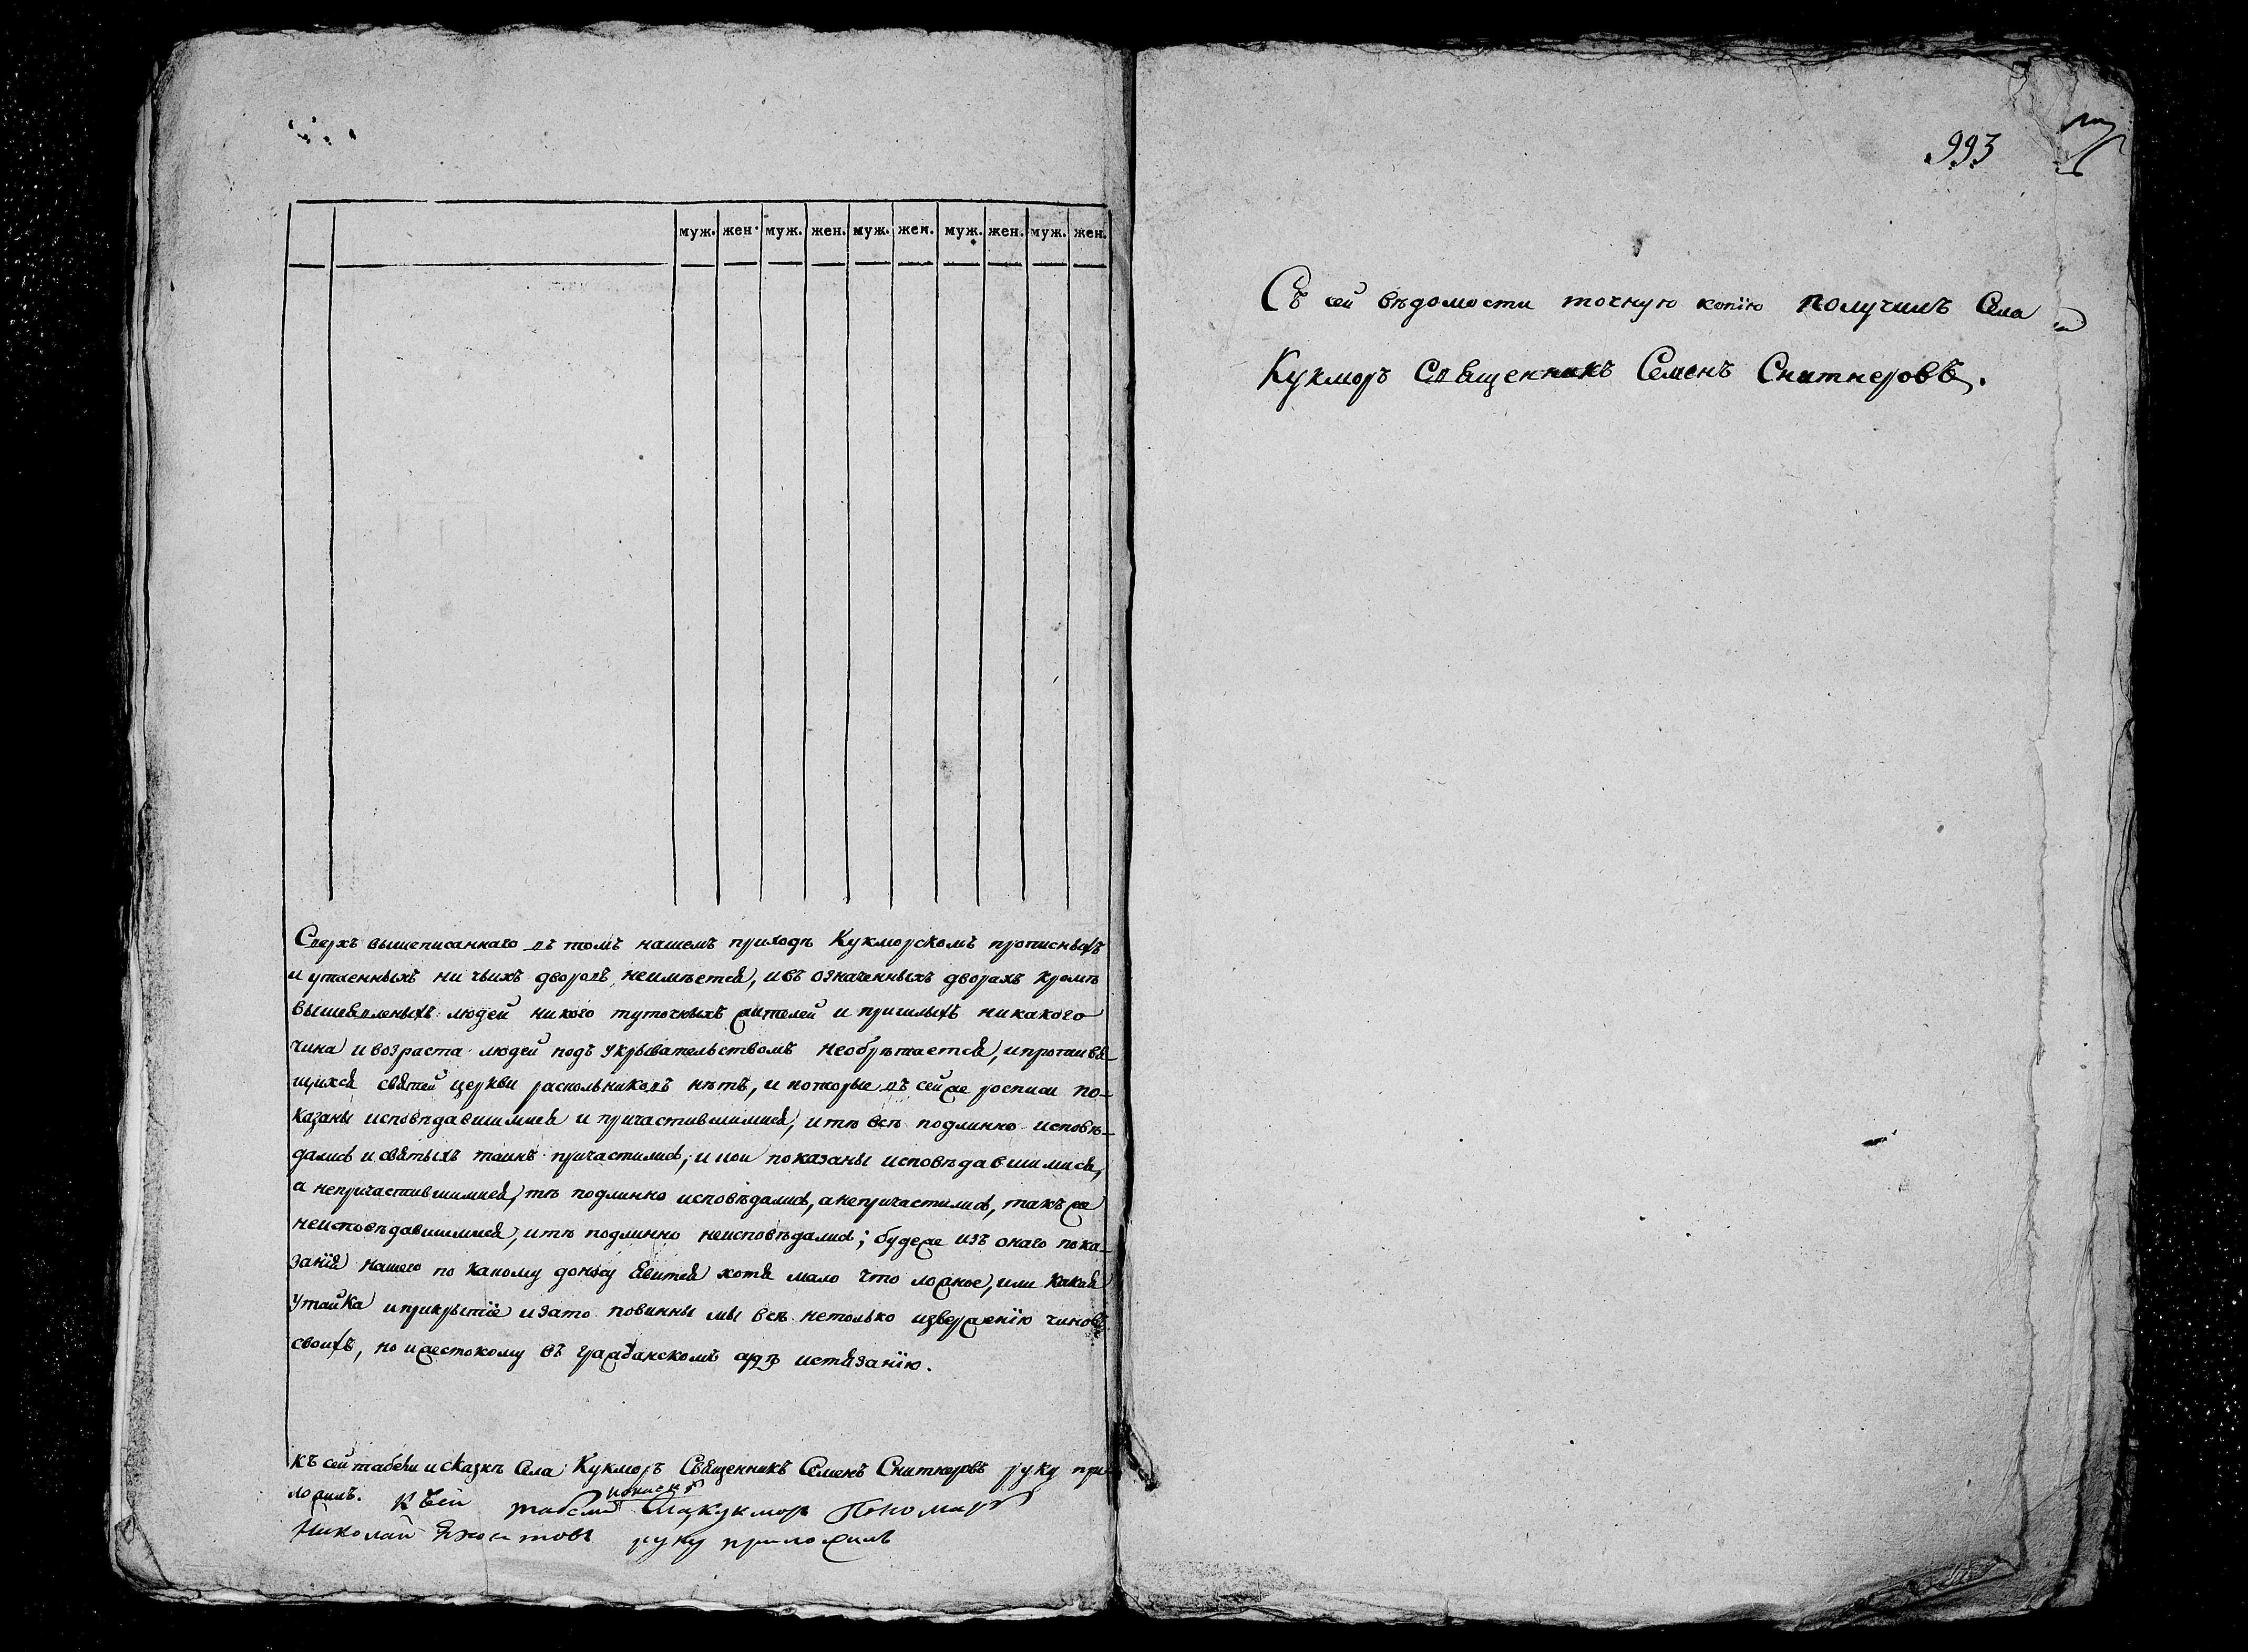 муж. жен. муж. жен. муж. жен. муж. жен. муж. жен.
Сверхъ вышеписаннаго въ томъ нашемъ приходѣ Кукморскомъ прописныхъ
и утаенныхъ ни чьихъ дворовъ неимѣется, и въ означенныхъ дворахъ кромѣ
вышеявленыхъ людей никого туточныхъ жителей и пришлыхъ никакого
чина и возраста людей подъ укрывательствомъ необрѣтается, и противя-
щихся святей церкви раскольниковъ нѣтъ, и которые въ сей же росписи по-
казаны исповѣдавшимися и причастившимися, и тѣ всѣ подлинно исповѣ-
дались и святыхъ таинъ причастились, и кои показаны исповѣдавшимися,
а непричастившимися, тѣ подлинно исповѣдались, а непричастились, такъ же
неисповѣдавшимися, и тѣ подлинно неисповѣдались; буде же изъ онаго пока-
занія нашего по какому доносу явится хотя мало что ложное, или какая
утайка и прикрытіе и за то повинны мы всѣ нетолько изверженію чиновъ
своихъ, но и жестокому въ гражданскомъ судѣ истязанію.
Къ сей табели и сказкѣ Села Кукморъ Священникъ Семенъ Снитнеровъ руку при-
ложилъ. К сей табели Села Кукморъ Пономарь
Николай руку приложилъ
993
Съ сей вѣдомости точную копію получилъ Села
Кукморъ Священникъ Семенъ Снитнеровъ.